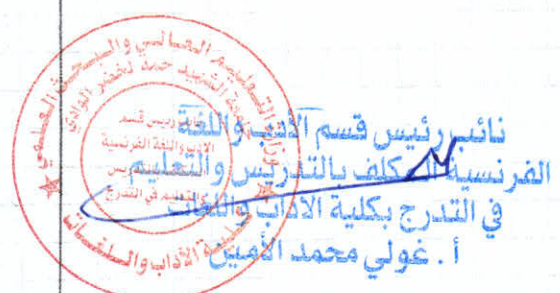 وزارة التعليم العالي والبحث العلمي
جامعة الشهيد حمه لخضر الوادي
نائب رئيس قسم
الآداب واللغة الفرنسية
المكلف بالتدريس
والتعليم في التدرج
كلية الآداب واللغات
نائب رئيس قسم الآداب واللغة
الفرنسية المكلف بالتدريس والتعليم
في التدرج بكلية الآداب واللغات
أ. غولي محمد الأمين